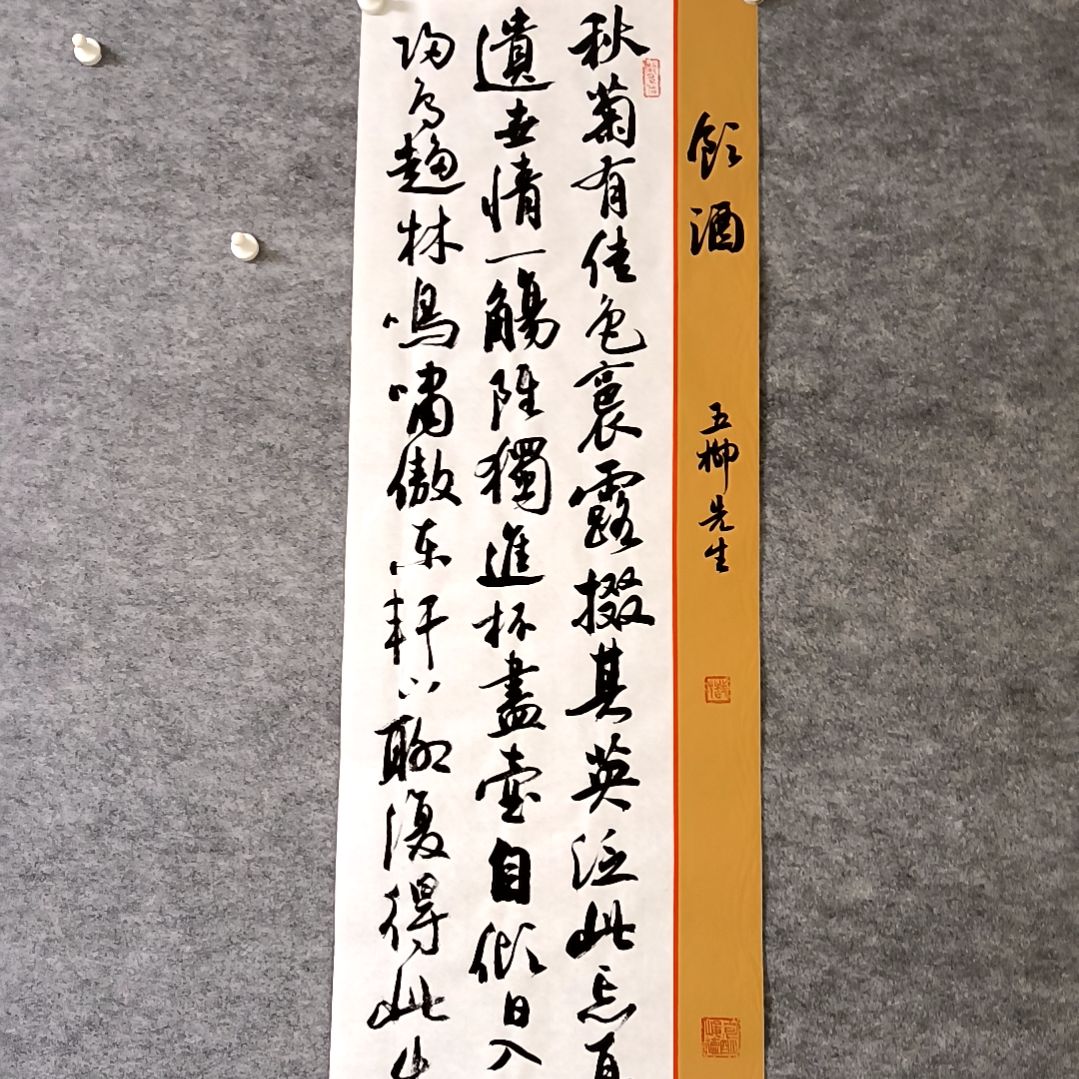 飲酒
五柳先生
秋菊有佳色裛露掇其英泛此忘
遺世情一觴雖獨進杯盡壺自傾日入
歸鳥趨林鳴嘯傲東軒下聊復得此生